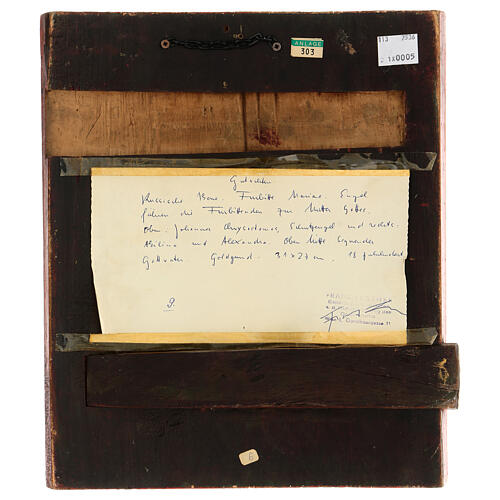 ANLAGE
303
113 2936
21X0005
Gutachten
Russische Ikone. Fürbitte Mariae. Engel
führen die Fürbittenden zur Mutter Gottes.
Oben: Johannes Chrysostomos, Schutzengel und rechts:
und Alexandra. Oben Mitte Segnender
Gottvater. Goldgrund. 31x27 cm. 18 Jahrhundert
9.
6